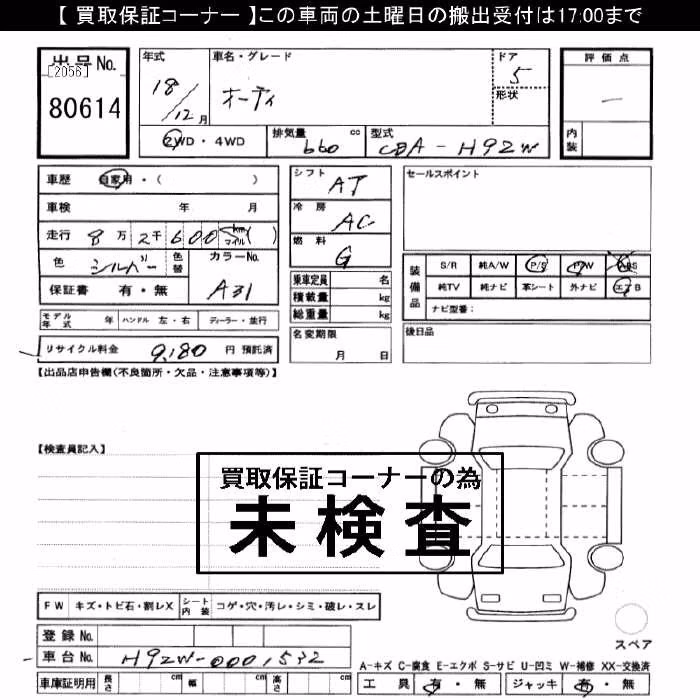 【 買取保証コーナー 】この車両の土曜日の搬出受付は17:00まで
出品No.
[2056]
80614
年式
18/12月
車名・グレード
オーティ
ドア
5
形状
評価点
—
内装
2WD・4WD
排気量 660 cc
型式 CBA-H92W
車歴 自家用・( )
車検 年 月
走行 8万2千600 km マイル( )
色 シルバー 色替
カラーNo. A31
保証書 有・無
シフト AT
冷房 AC
燃料 G
乗車定員 名
積載量 kg
総重量 kg
セールスポイント
装備品
S/R 純A/W P/S P/W ABS
純TV 純ナビ 革シート 外ナビ エアB
ナビ型番:
モデル年式 年 ハンドル 左・右 ディーラー・並行
名変期限 月 日
後日品
リサイクル料金 9,180 円 預託済
【出品店申告欄(不良箇所・欠品・注意事項等)】
【検査員記入】
買取保証コーナーの為
未検査
FW キズ・トビ石・割レX シート内装 コゲ・穴・汚レ・シミ・破レ・スレ
スペア
登録No.
車台No. H92W-0001532
A-キズ C-腐食 E-エクボ S-サビ U-凹ミ W-補修 XX-交換済
車庫証明用 長さ cm 幅 cm 高さ cm
工具 有・無 ジャッキ 有・無